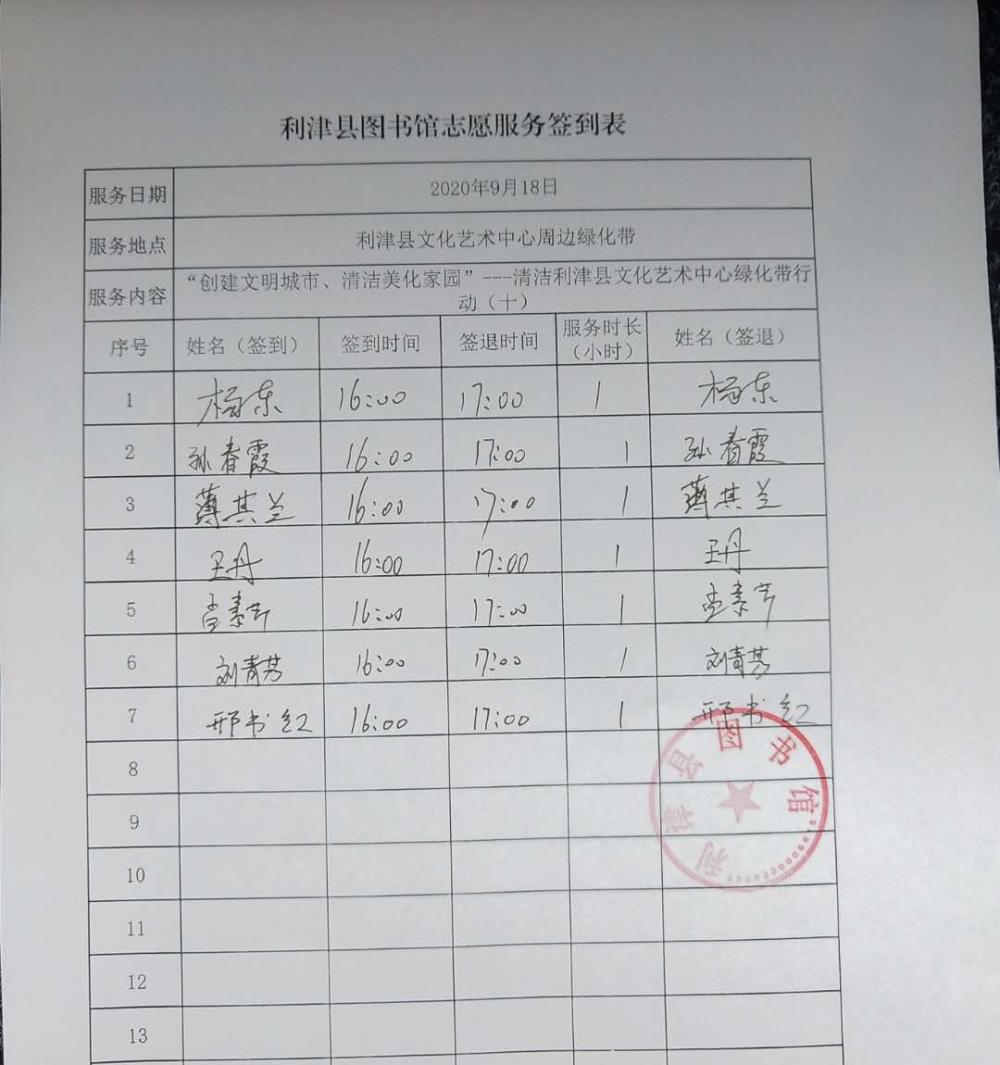 利津县图书馆志愿服务签到表
服务日期 2020年9月18日
服务地点 利津县文化艺术中心周边绿化带
服务内容 “创建文明城市、清洁美化家园”---清洁利津县文化艺术中心绿化带行
动（十）
序号 姓名（签到） 签到时间 签退时间 服务时长（小时） 姓名（签退）
1 杨东 16:00 17:00 1 杨东
2 孙春霞 16:00 17:00 1 孙春霞
3 薄其兰 16:00 17:00 1 薄其兰
4 王丹 16:00 17:00 1 王丹
5 孟素芹 16:00 17:00 1 孟素芹
6 刘青 16:00 17:00 1 刘青
7 邢书红 16:00 17:00 1 邢书红
8
9
10
11
12
13
利津县图书馆